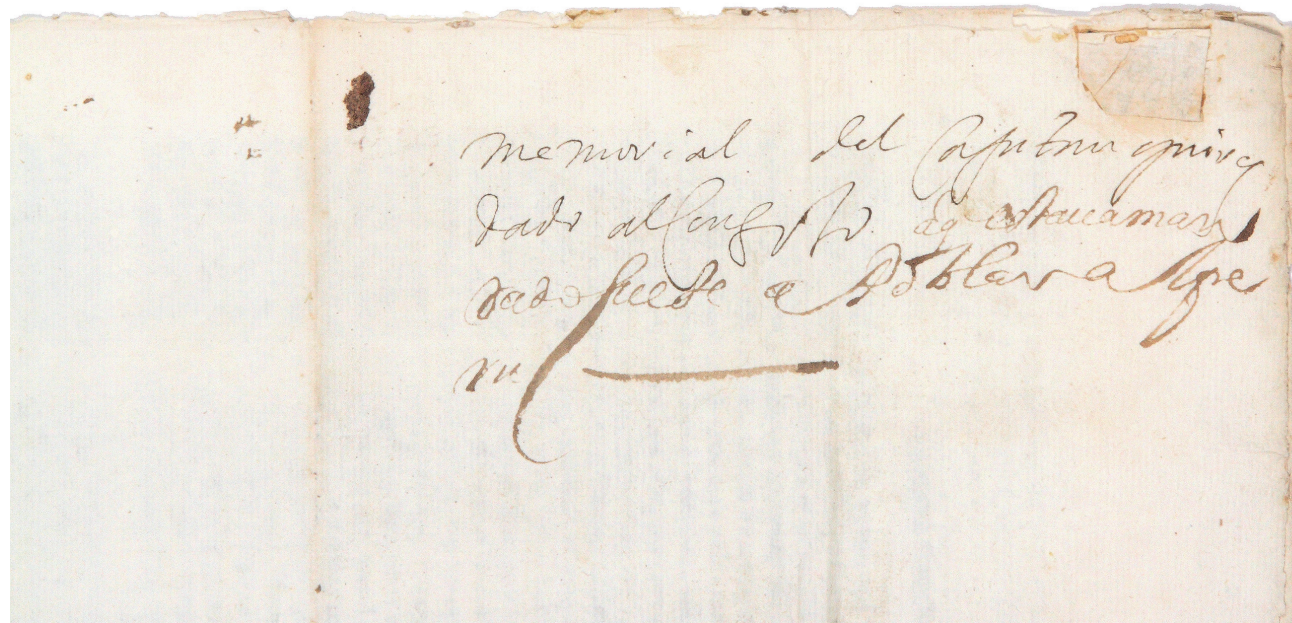 memorial del Capitan quiro
dado al Consejo aq estaua man
dado fuese a Poblar a
ru